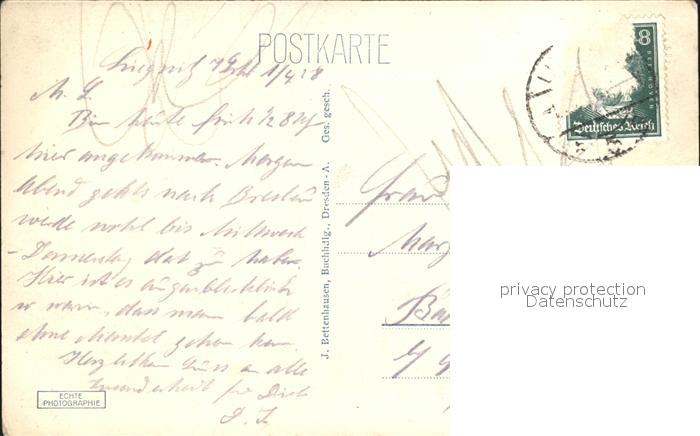 POSTKARTE
Liegnitz 1/4 28
M. L.
Bin heute früh 1/2 8
hier angekommen. Morgen
Abend gehts nach Breslau
werde wohl bis Mittwoch
- Donnerstag dort zu haben.
Hier ist es augenblicklich
so warm, dass man bald
ohne Mantel gehen kann.
Herzlichen Gruss an alle
insonderheit für Dich
ECHTE
PHOTOGRAPHIE
J. Bettenhausen, Buchhdlg., Dresden-A. Ges. gesch.
8
BEETHOVEN
Deutsches Reich
Frau
privacy protection
Datenschutz